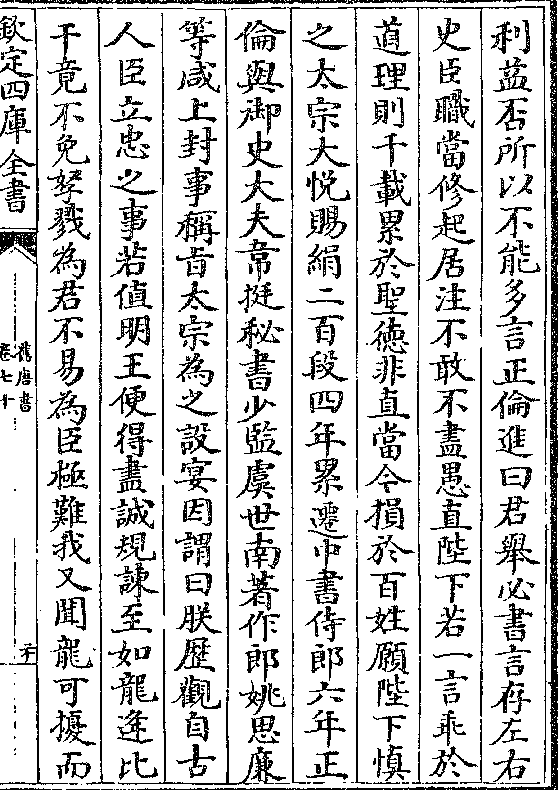 利益否所以不能多言正倫進曰君舉必書言存左右
史臣職當修起居注不敢不盡愚直陛下若一言乖於
道理則千載累於聖德非直當今損於百姓願陛下慎
之太宗大悅賜絹二百段四年累遷中書侍郎六年正
倫與御史大夫韋挺秘書少監虞世南著作郎姚思廉
等咸上封事稱旨太宗為之設宴因謂曰朕歷觀自古
人臣立忠之事若值明王便得盡誠規諫至如龍逄比
干竟不免孥戮為君不易為臣極難我又聞龍可擾而
欽定四庫全書
舊唐書
卷七十